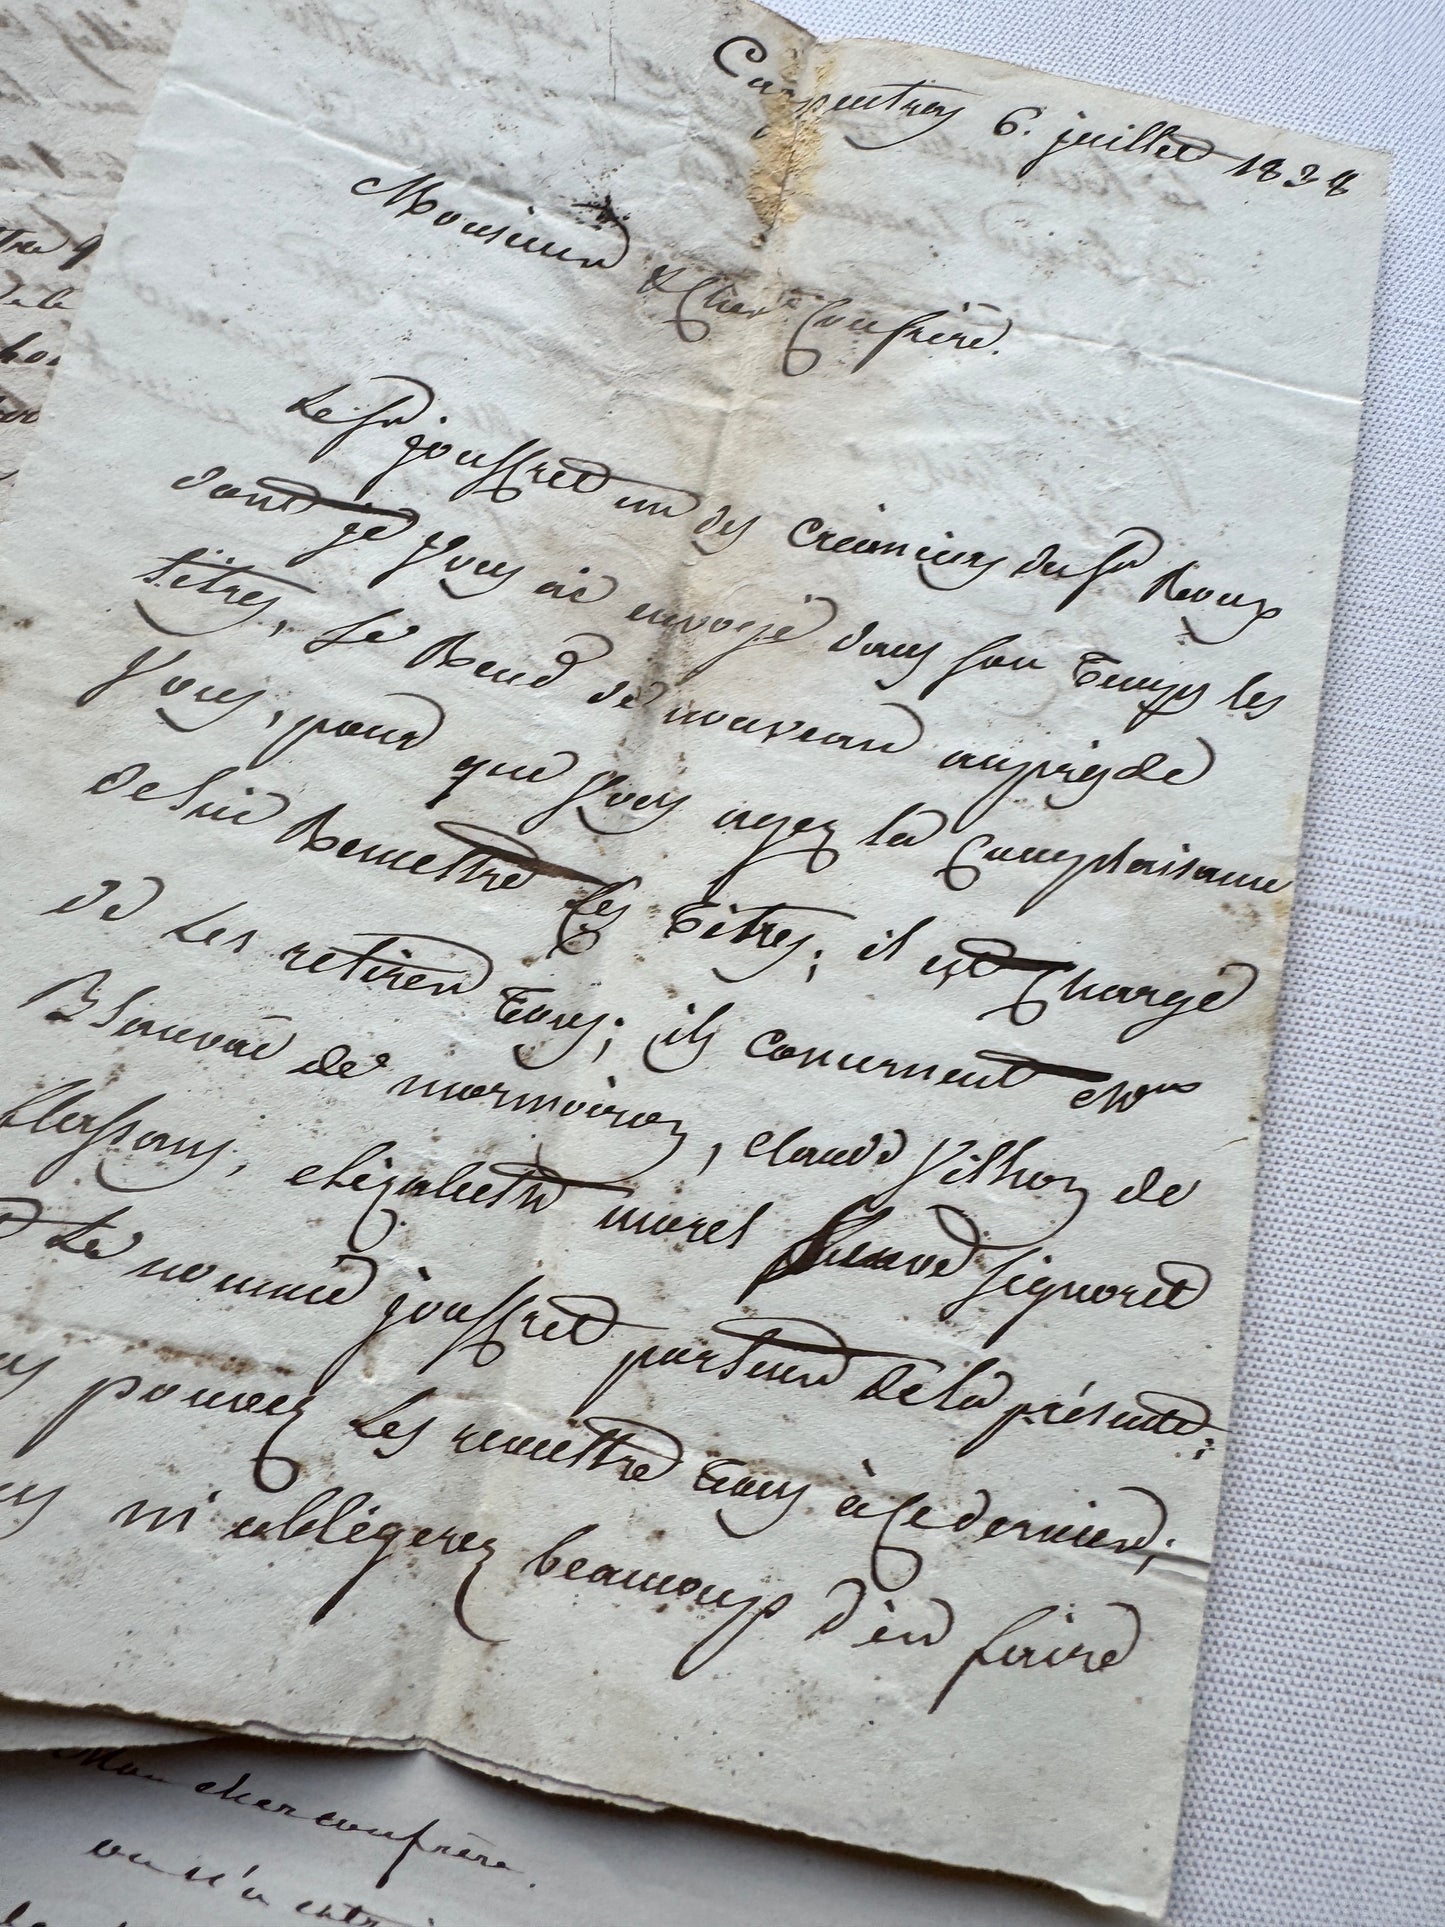 Carpentras 6. juillet 1838
Monsieur & Cher Confrère.
Le Sr jouffret un des créanciers du Sr Roux
dont je vous ai envoyé dans son temps les
titres, se Rend de nouveau auprès de
vous, pour que vous ayez la Complaisance
de lui Remettre les titres; il est Chargé
de les retirer tous; ils concernent
de mormoiron, claude Vilhon de
flassans, elizabeth morel veuve Signoret
le nommé jouffret porteur de la présente;
pouvez les remettre tous à ce dernier;
m'obligerez beaucoup d'en faire
Mon cher confrère.
on n'a